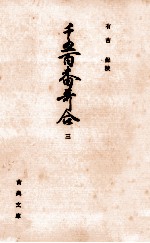 有吉 保校
千五百番歌合 三
古典文庫